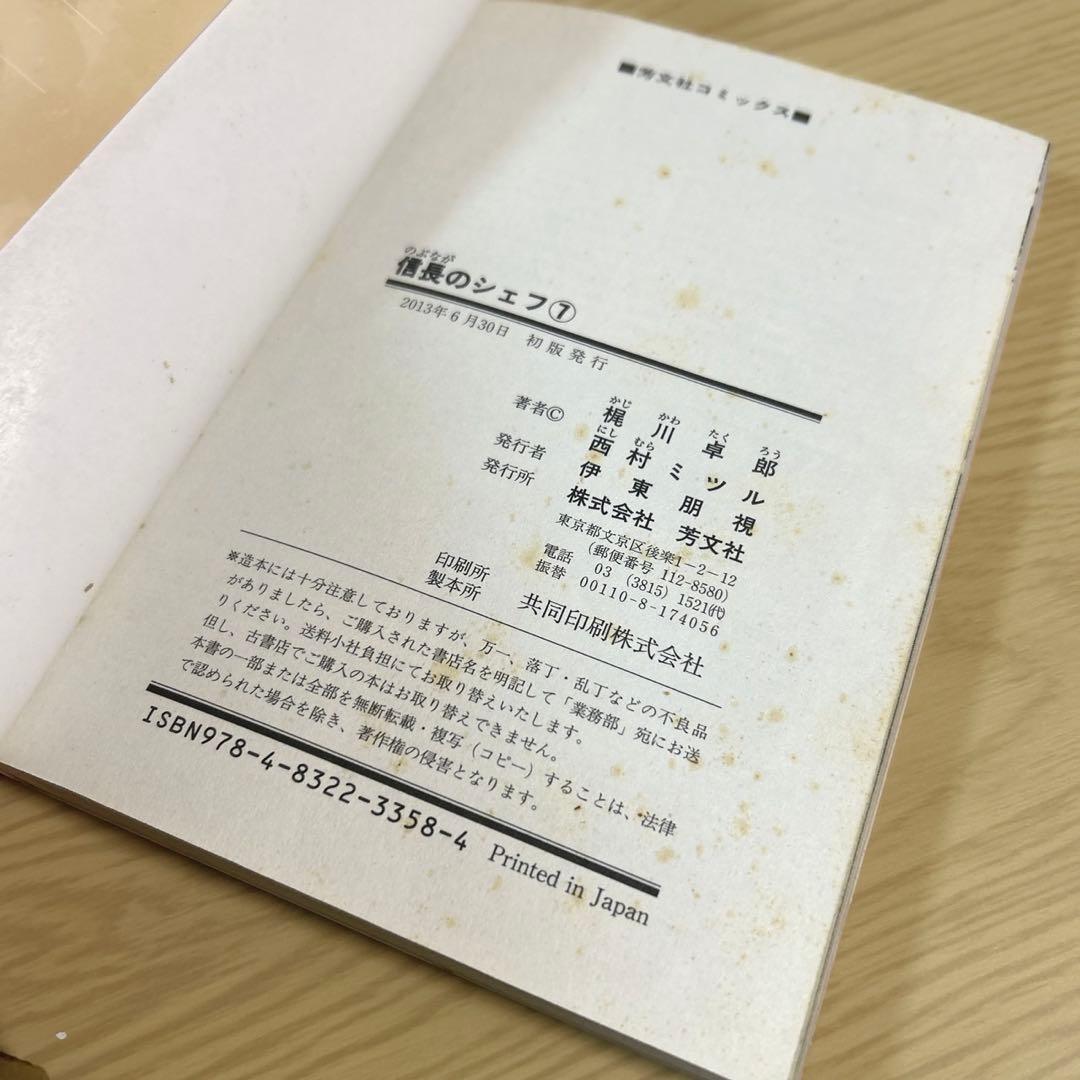 ■芳文社コミックス■
のぶなが
信長のシェフ⑦
2013年6月30日 初版発行
かじ かわ たく ろう
著者© 梶川卓郎
にし むら
西村ミツル
発行者 伊東朋視
発行所 株式会社 芳文社
東京都文京区後楽1-2-12
(郵便番号 112-8580)
電話 03 (3815) 1521㈹
振替 00110-8-174056
印刷所
製本所 共同印刷株式会社
※造本には十分注意しておりますが、万一、落丁・乱丁などの不良品
がありましたら、ご購入された書店名を明記して「業務部」宛にお送
りください。送料小社負担にてお取り替えいたします。
但し、古書店でご購入の本はお取り替えできません。
本書の一部または全部を無断転載・複写（コピー）することは、法律
で認められた場合を除き、著作権の侵害となります。
ISBN978-4-8322-3358-4 Printed in Japan